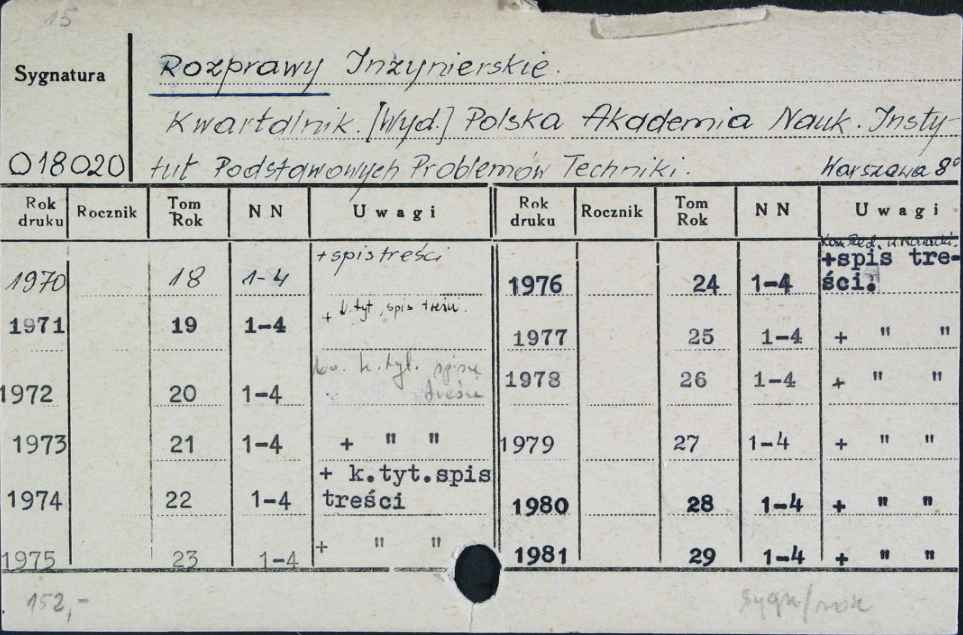 15
Sygnatura
Rozprawy Inżynierskie.
Kwartalnik. [Wyd.] Polska Akademia Nauk. Insty-
018020 tut Podstawowych Problemów Techniki. Warszawa 8°
Rok druku Rocznik Tom Rok NN Uwagi Rok druku Rocznik Tom Rok NN Uwagi
1970 18 1-4 + spis treści
1976 24 1-4 +spis tre-
ści.
1971 19 1-4 + k.tyt, spis treści.
1977 25 1-4 + " "
1972 20 1-4 k.tyt. spisu
treści
1978 26 1-4 + " "
1973 21 1-4 + " "
1979 27 1-4 + " "
1974 22 1-4 + k.tyt.spis
treści
1980 28 1-4 + " "
1975 23 1-4 + " "
1981 29 1-4 + " "
152,-